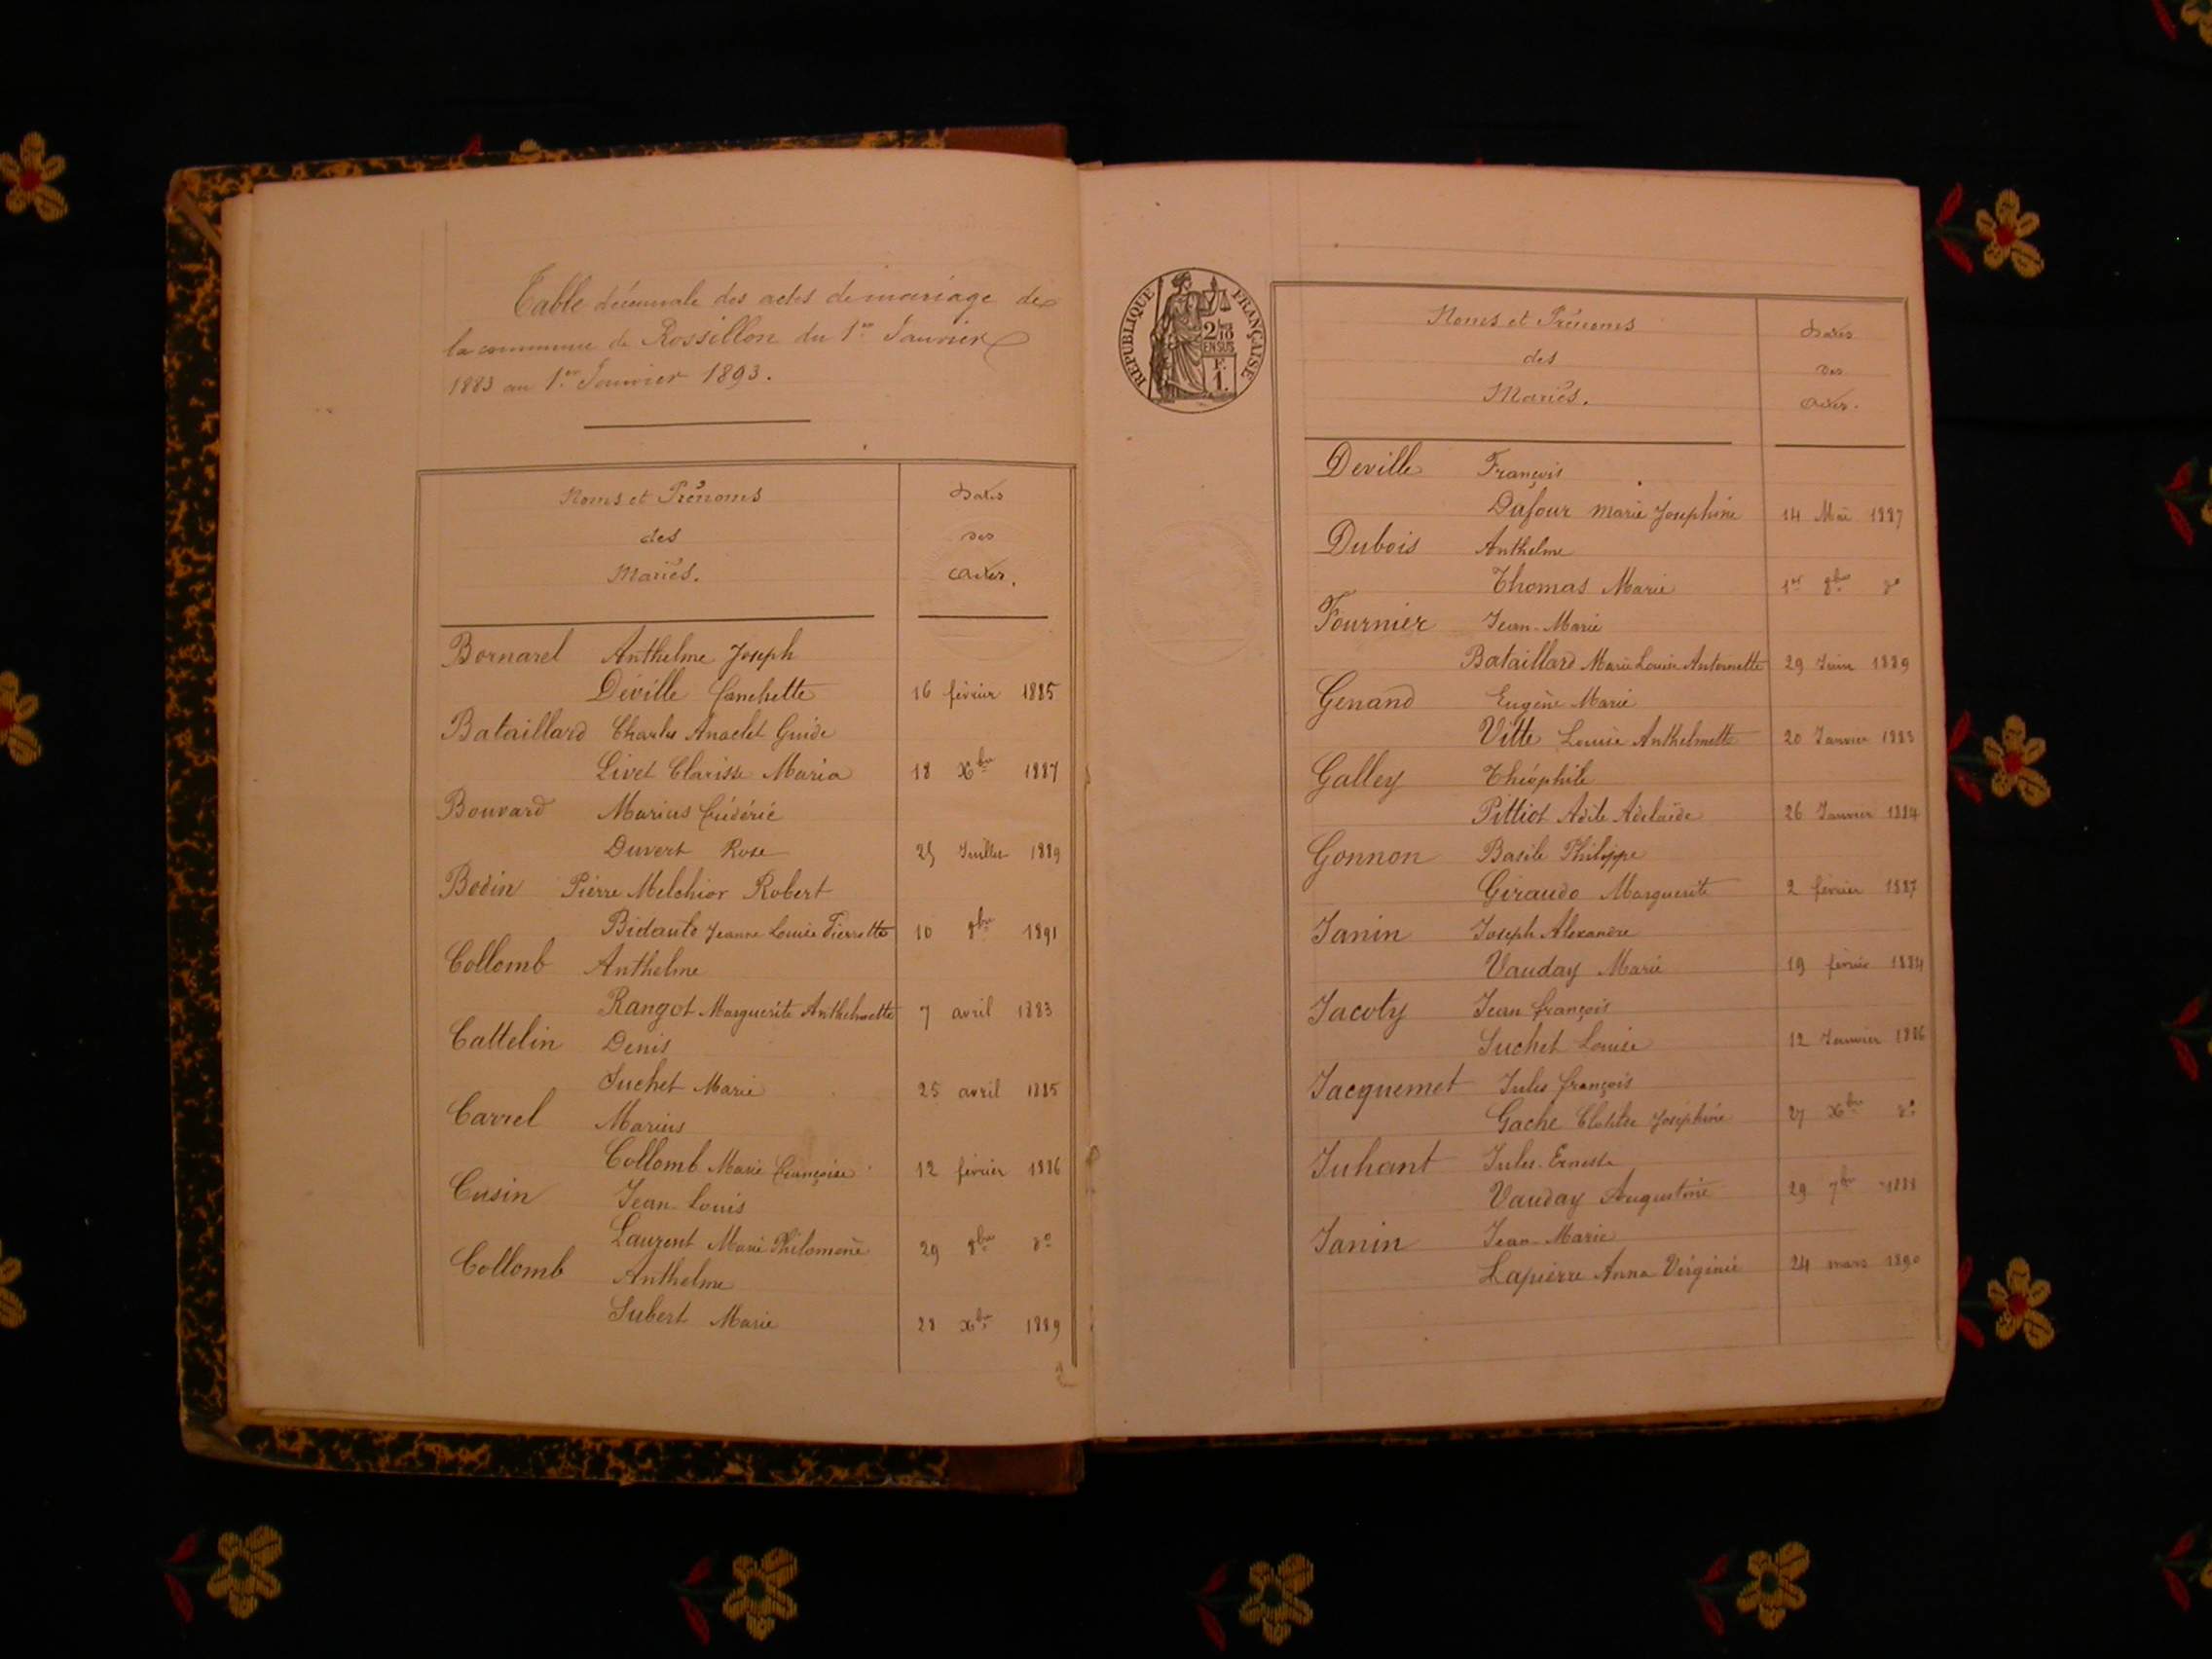 Table décennale des actes de mariage de
la commune de Rossillon du 1er Janvier
1883 au 1er Janvier 1893.
Noms et Prénoms
des
Mariés.
Dates
des
actes.
Bornarel Anthelme Joseph
Déville Fanchette 16 février 1885
Bataillard Charles Anaclet Guide
Livet Clarisse Maria 18 Xbre 1887
Bouvard Marius Frédéric
Duvert Rose 25 Juillet 1889
Bodin Pierre Melchior Robert
Bidault Jeanne Louise Pierrette 10 8bre 1891
Collomb Anthelme
Rangot Marguerite Anthelmette 7 avril 1883
Cattelin Denis
Suchet Marie 25 avril 1885
Carrel Marius
Collomb Marie Françoise 12 février 1886
Cusin Jean-Louis
Laurent Marie Philomène 29 8bre do
Collomb Anthelme
Jubert Marie 28 Xbre 1889
REPUBLIQUE FRANÇAISE
2/10
EN SUS
F.
1.
Noms et Prénoms
des
Mariés.
Dates
des
actes.
Deville François
Dufour marie Joséphine 14 Mai 1887
Dubois Anthelme
Thomas Marie 1er 8bre do
Fournier Jean-Marie
Bataillard Marie Louise Antoinette 29 Juin 1889
Genand Eugène Marie
Vitte Louise Anthelmette 20 Janvier 1883
Galley Théophile
Pittiot Adèle Adélaïde 26 Janvier 1884
Gonnon Basile Philippe
Giraudo Marguerite 2 février 1887
Janin Joseph Alexandre
Vauday Marie 19 février 1884
Jacoty Jean françois
Suchet Louise 12 Janvier 1886
Jacquemet Jules françois
Gache Clotilde Joséphine 27 Xbre do
Juhant Jules-Ernest
Vauday Augustine 29 7bre 1888
Janin Jean-Marie
Lapierre Anna Virginie 24 mars 1890